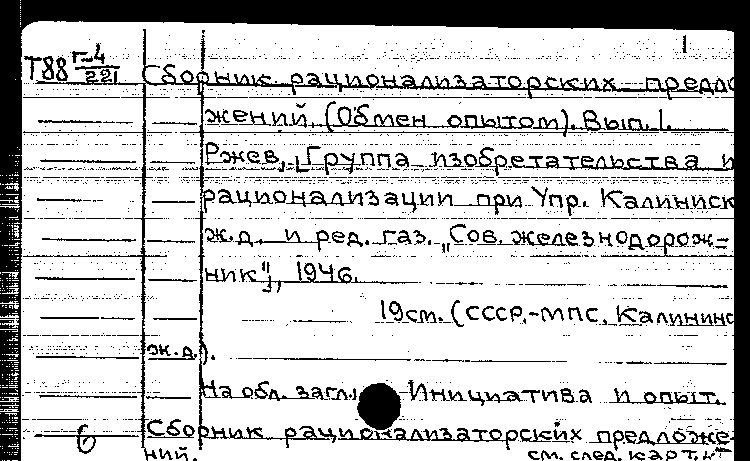 1
Т88 Г-4/221 Сборник рационализаторских предло
жений. (Обмен опытом). Вып. 1.
Ржев, [Группа изобретательства и
рационализации при Упр. Калининск
ж.д. и ред. газ. „Сов. железнодорож=
ник"], 1946.
19см. (СССР.-МПС. Калининс
ж.д.).
На обл. загл.: Инициатива и опыт.
6 Сборник рационализаторских предложе-
ний. см. след. карт.